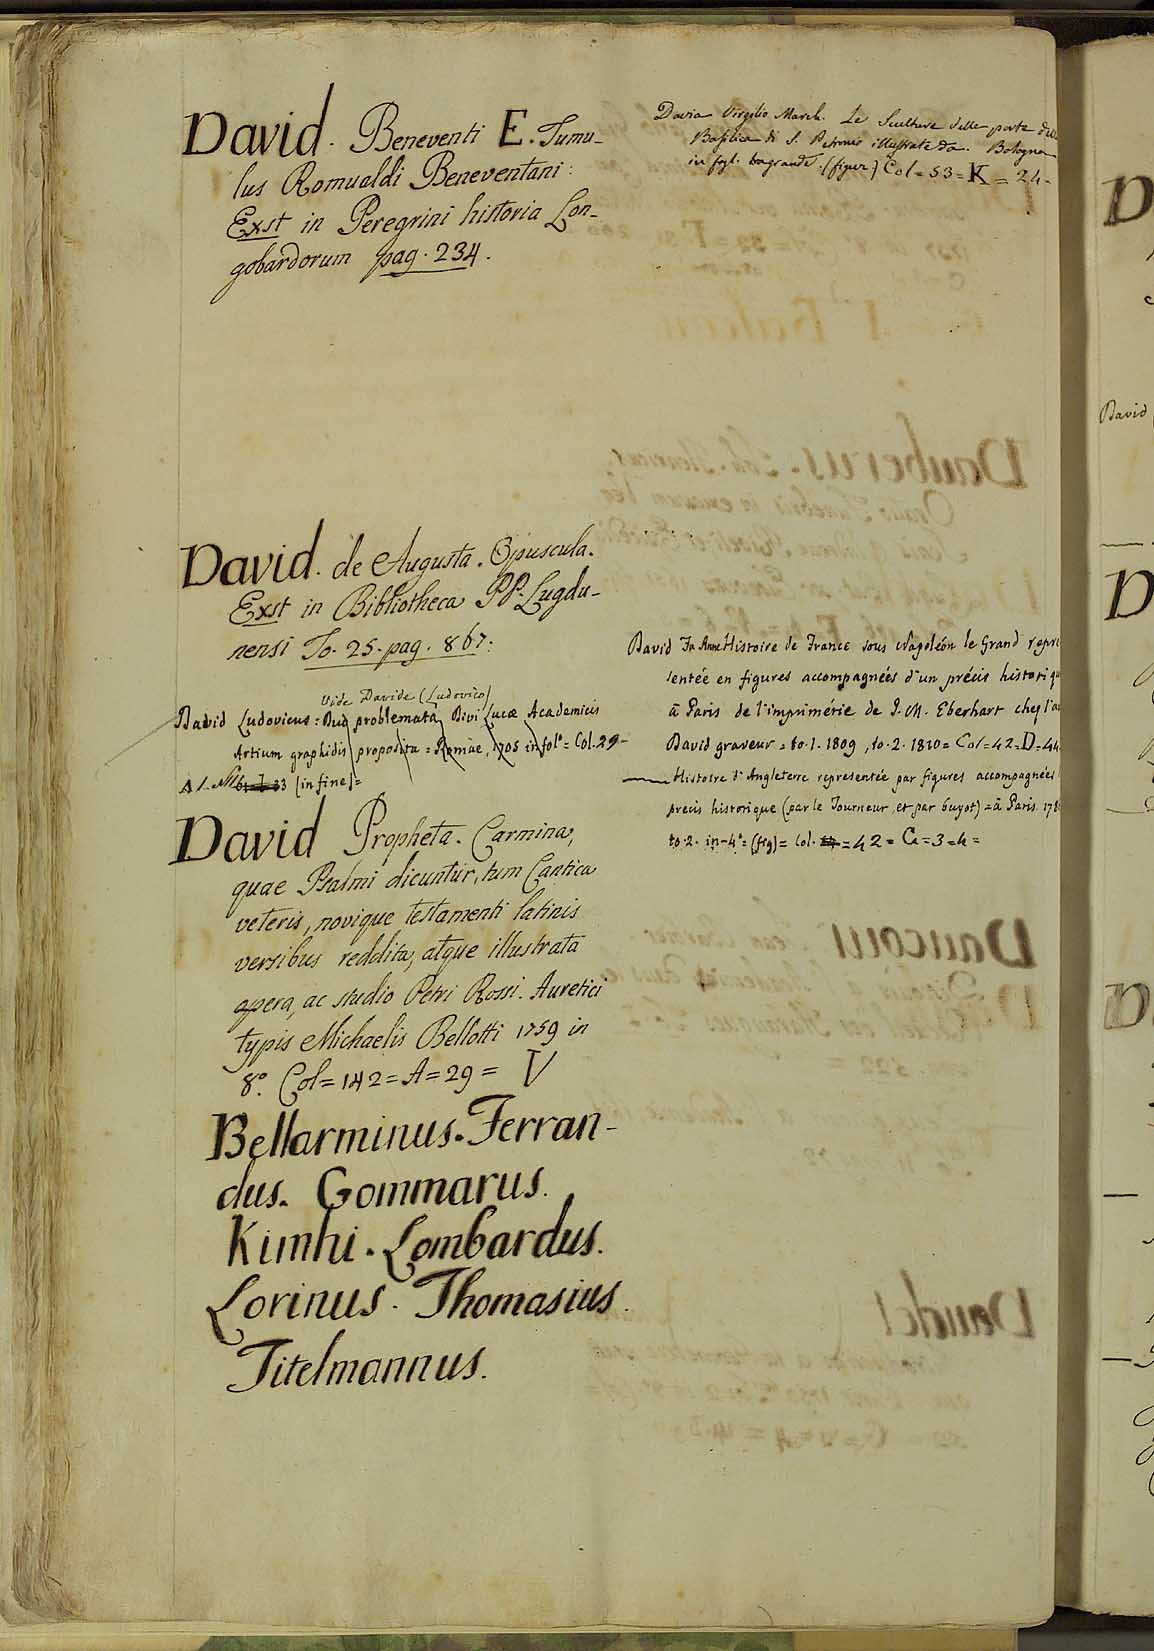 David. Beneventi E. Tumu-
lus Romualdi Beneventani:
Exst in Peregrini historia Lon-
gobardorum pag. 234.
David. de Augusta. Opuscula.
Exst in Bibliotheca PP. Lugdu-
nensi To. 25. pag. 867:
Vide Davide (Ludovico)
David Ludovicus: Duo problemata Divi Lucæ Academicis
Artium graphidis proposita = Romæ, 1705 in fol.º = Col. 29-
33 [in fine]=
David Propheta. Carmina,
quae Psalmi dicuntur, tum Cantica
veteris, novique testamenti latinis
versibus reddita, atque illustrata
opera, ac studio Petri Rossi. Auretici
typis Michaelis Bellotti 1759 in
8º. Col = 142 = A = 29 = V
Bellarminus. Ferran-
dus. Gommarus.
Kimhi. Lombardus.
Lorinus. Thomasius.
Titelmannus.
Davia Virgilio March. Le Sculture delle porte
Basilica di S. Petronio illustrate da. Bologna
in fogl. (figur) Col = 53 = K = 24-
David Histoire de France sous Napoléon le Grand repré
sentée en figures accompagnées d'un précis historiq
à Paris de l'imprimérie de J. M. Eberhart chez l'au
David graveur = to. 1. 1809, to. 2. 1810 = Col = 42 = D = 44
— Histoire d'Angleterre representée par figures accompagnées
precis historique (par le Tourneur, et par Guyot) = à Paris. 178
to. 2. in-4º = (fig) = Col. = 42 = C = 3 = 4 =
David